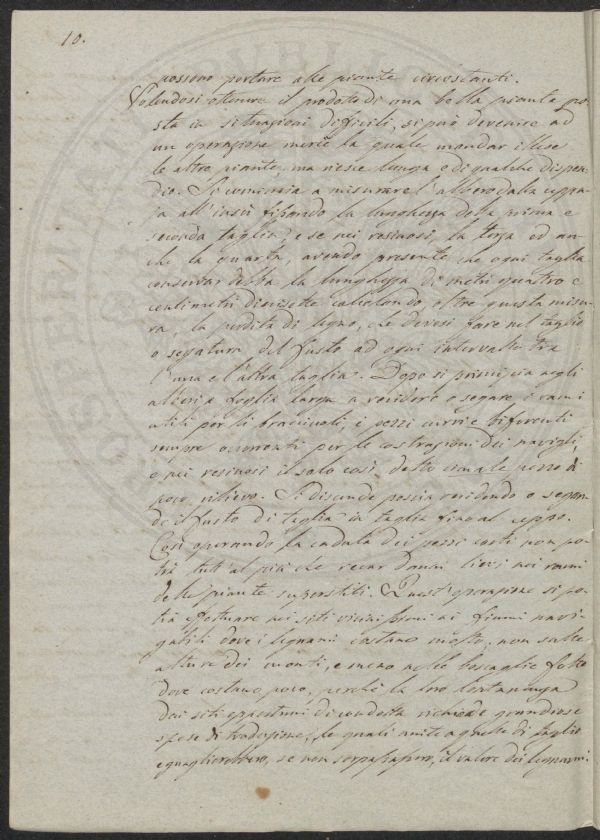 10.
possono portare alle piante circostanti.
Volendosi ottenere il prodotto di una bella pianta po-
sta in situazioni difficili, si può devenire ad
un operazione mercè la quale mandar illese
le altre piante, ma riesce lunga e di qualche dispen-
dio. Si comincia a misurare l'albero dalla ceppa-
ja all'insù fissando la lunghezza della prima e
seconda taglia, e se nei resinosi, la terza ed an-
che la quarta, avendo presente che ogni taglia
conservar debba la lunghezza di metri quattro e
centimetri diecisette calcolando oltre questa misu-
ra, la perdita di legno, che devesi fare nel taglio
o segatura del fusto ad ogni intervallo tra
l'una e l'altra taglia. Dopo si principia negli
alberi a foglia larga a recidere o segare i rami
utili per li bracciuoli, i pezzi curvi e biforcuti
sempre occorrenti per le costruzioni dei navigli,
e nei resinosi il solo così detto cimale pezzo di
poco rilievo. Si discende poscia recidendo o segan-
do il fusto di taglia in taglia fino al ceppo.
Così operando la caduta dei pezzi corti non po-
trà tutt'al più che recar danni lievi nei rami
delle piante superstiti. Quest'operazione si po-
trà effettuare nei siti vicinissimi ai fiumi navi-
gabili dove i legnami costano molto, non sulle
alture dei monti, e meno nelle boscaglie folte
dove costano poco, perchè la loro lontananza
dai siti opportuni di condotta richiede grandiose
spese di traduzione, le quali unite a quelle di taglio
eguaglierebbero, se non sorpassassero, il valore dei legnami.